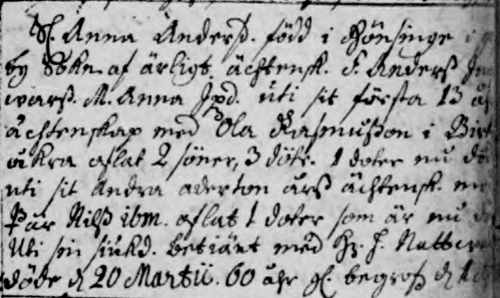 Sl. Anna Andersd. född i Hönsinge i
by Sokn. af ärligt ächtensk. F. Anders
warss. M. Anna Jpd. uti sit första 13 år
ächtenskap med Ola Rasmusson i Birk
åkra aflat 2 söner, 3 dötr. 1 doter nu dö
uti sit andra aderton årss ächtensk. me
Pär Nilss ibm. aflat 1 doter som är nu
Uti sin siukd. betiänt med Hr. J.
döde d 20 Martii. 60 åhr gl. begrofs d